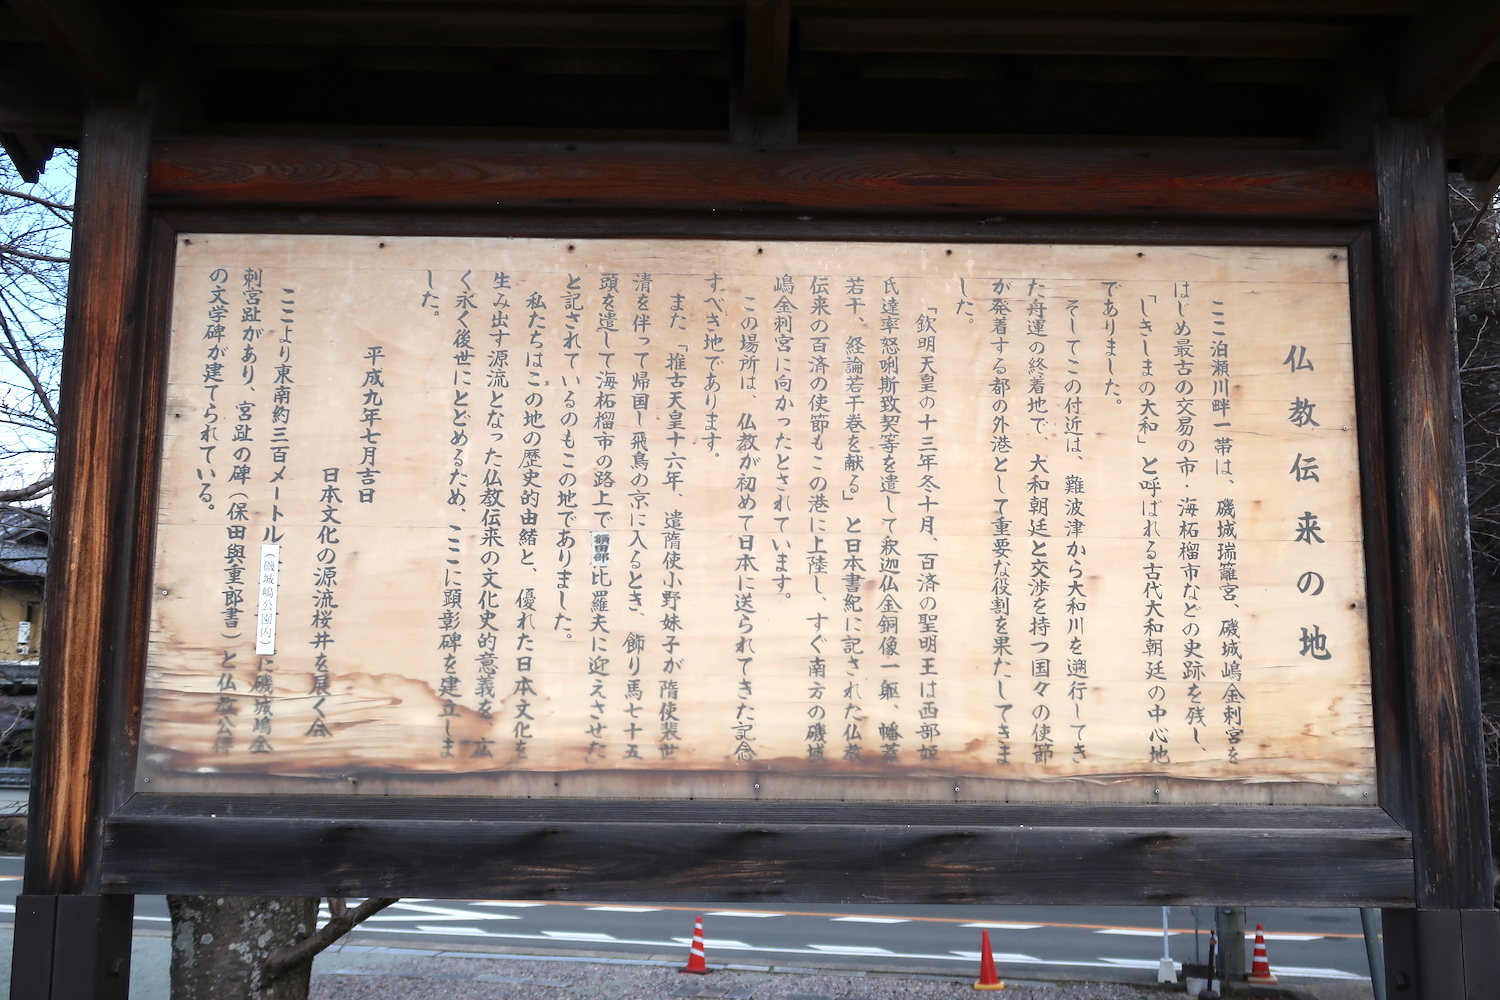 仏教伝来の地
ここ泊瀬川畔一帯は、磯城瑞籬宮、磯城嶋金刺宮を
はじめ最古の交易の市・海柘榴市などの史跡を残し、
「しきしまの大和」と呼ばれる古代大和朝廷の中心地
でありました。
そしてこの付近は、難波津から大和川を遡行してき
た舟運の終着地で、大和朝廷と交渉を持つ国々の使節
が発着する都の外港として重要な役割を果たしてきま
した。
「欽明天皇の十三年冬十月、百済の聖明王は西部姫
氏達率怒唎斯致契等を遣して釈迦仏金銅像一軀、幡蓋
若干、経論若干巻を献る」と日本書紀に記された仏教
伝来の百済の使節もこの港に上陸し、すぐ南方の磯城
嶋金刺宮に向かったとされています。
この場所は、仏教が初めて日本に送られてきた記念
すべき地であります。
また「推古天皇十六年、遣隋使小野妹子が隋使裴世
清を伴って帰国し飛鳥の京に入るとき、飾り馬七十五
頭を遣して海柘榴市の路上で額田部比羅夫に迎えさせた」
と記されているのもこの地でありました。
私たちはこの地の歴史的由緒と、優れた日本文化を
生み出す源流となった仏教伝来の文化史的意義を、広
く永く後世にとどめるため、ここに顕彰碑を建立しま
した。
平成九年七月吉日
日本文化の源流桜井を展く会
ここより東南約三百メートル(磯城嶋公園内)に磯城嶋金
刺宮趾があり、宮趾の碑(保田與重郎書)と仏教公伝
の文学碑が建てられている。